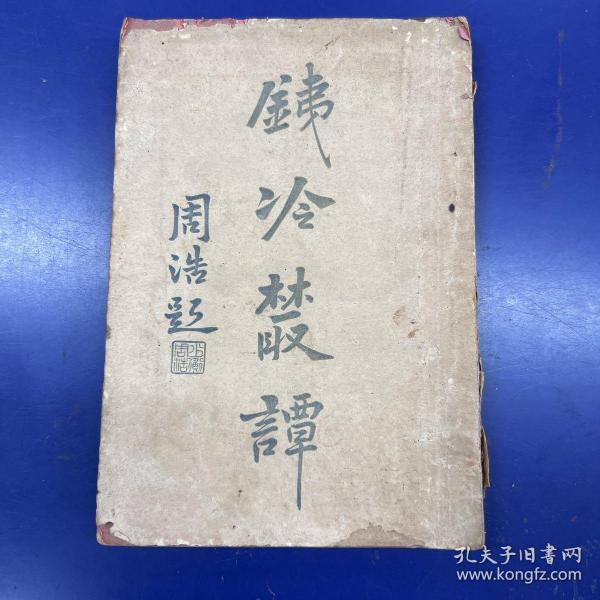 銕冷叢譚
周浩題
孔夫子旧书网
www.kongfz.com